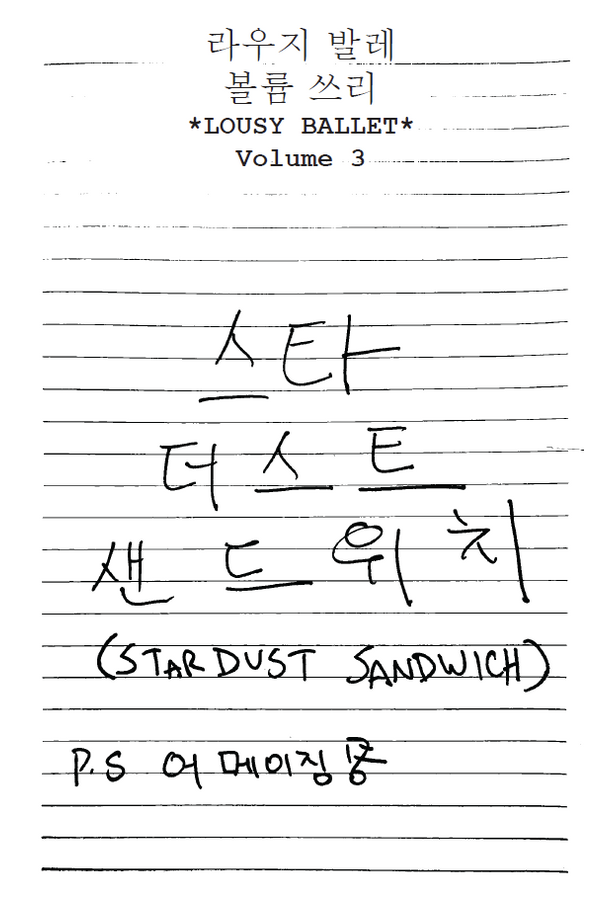 라우지 발레
볼륨 쓰리
*LOUSY BALLET*
Volume 3
스타
더스트
샌드위치
(STARDUST SANDWICH)
P.S 어메이징 뽕